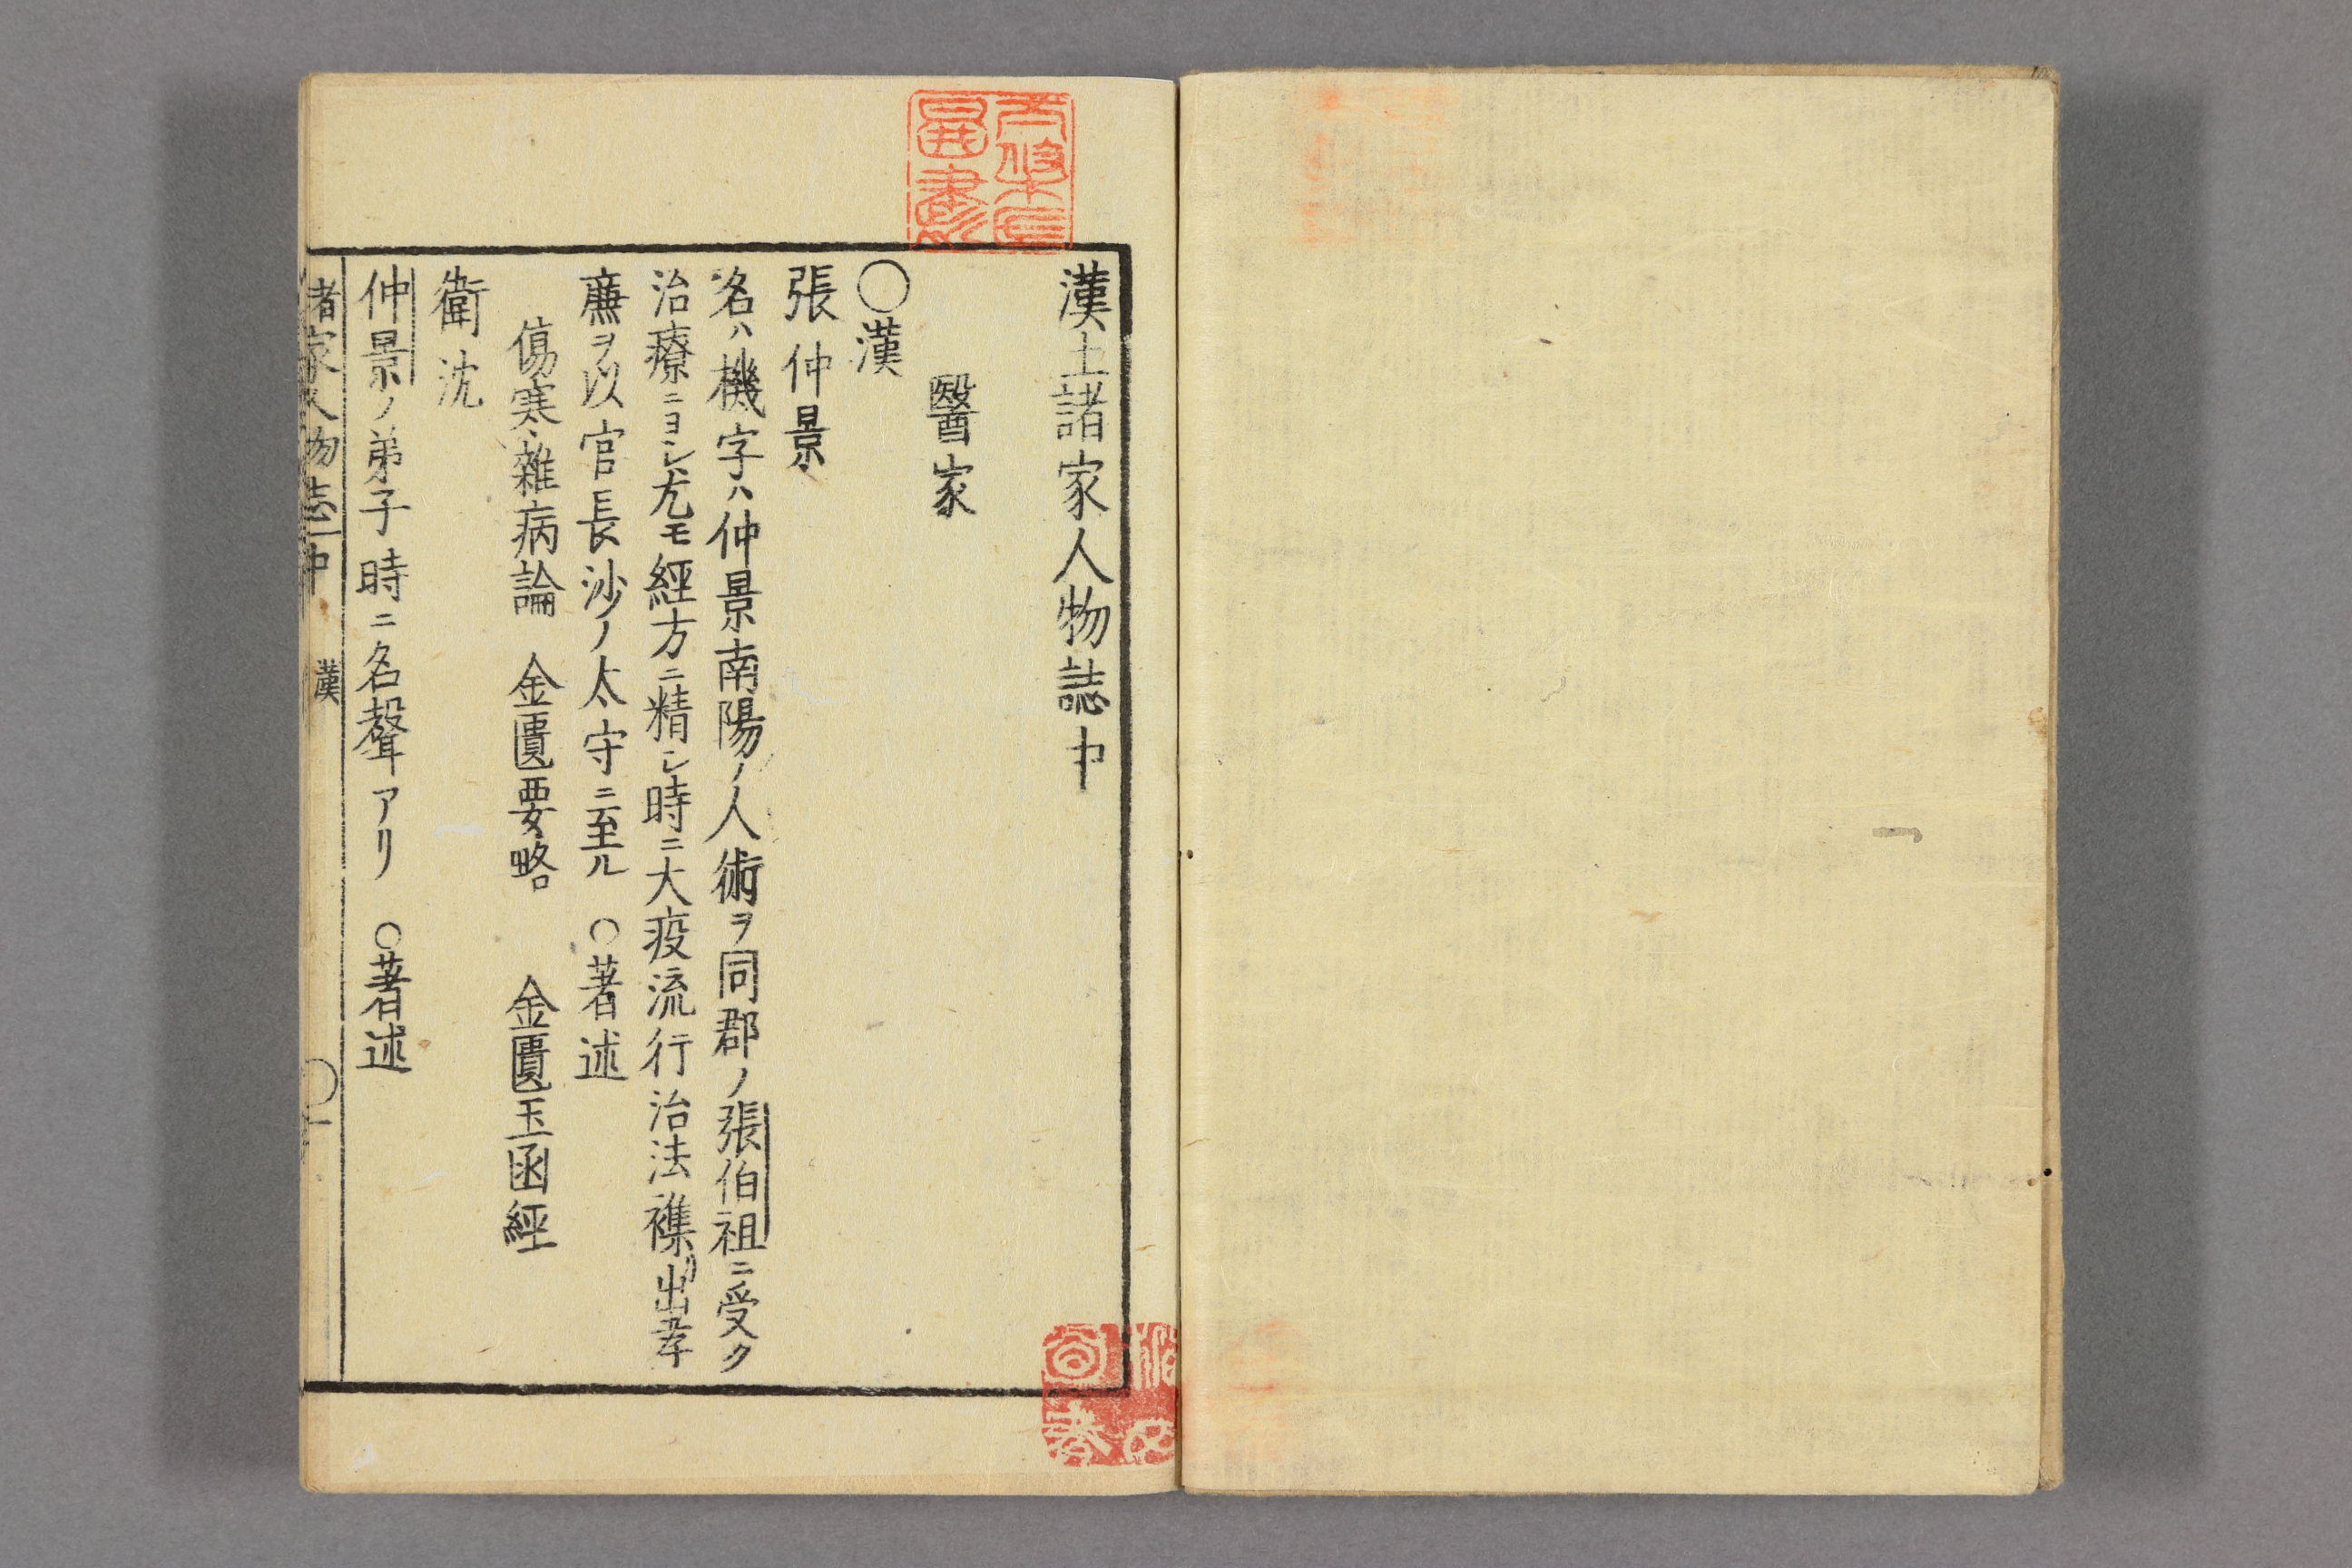 漢土諸家人物誌中
醫家
○漢
張仲景
名ハ機字ハ仲景南陽ノ人術ヲ同郡ノ張伯祖ニ受ク
治療ニヨシ尤モ經方ニ精シ時ニ大疫流行治法襍出孝
廉ヲ以官長沙ノ太守ニ至ル ○著述
傷寒雜病論 金匱要略 金匱玉函經
衛沈
仲景ノ弟子時ニ名聲アリ ○著述
諸家人物志中 漢